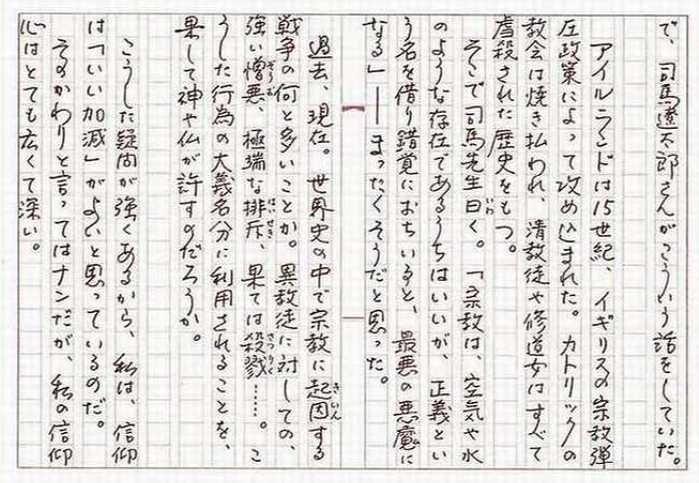 で、司馬遼太郎さんがこういう話をしていた。
アイルランドは15世紀、イギリスの宗教弾
圧政策によって攻め込まれた。カトリックの
教会は焼き払われ、清教徒や修道女はすべて
虐殺された歴史をもつ。
そこで司馬先生曰く。「宗教は、空気や水
のような存在であるうちはいいが、正義とい
う名を借り錯覚におちいると、最悪の悪魔に
なる」──まったくそうだと思った。
過去、現在。世界史の中で宗教に起因する
戦争の何と多いことか。異教徒に対しての、
強い憎悪、極端な排斥、果ては殺戮……。こ
うした行為の大義名分に利用されることを、
果して神や仏が許すのだろうか。
こうした疑問が強くあるから、私は、信仰
は「いい加減」がよいと思っているのだ。
そのかわりと言ってはナンだが、私の信仰
心はとても広くて深い。